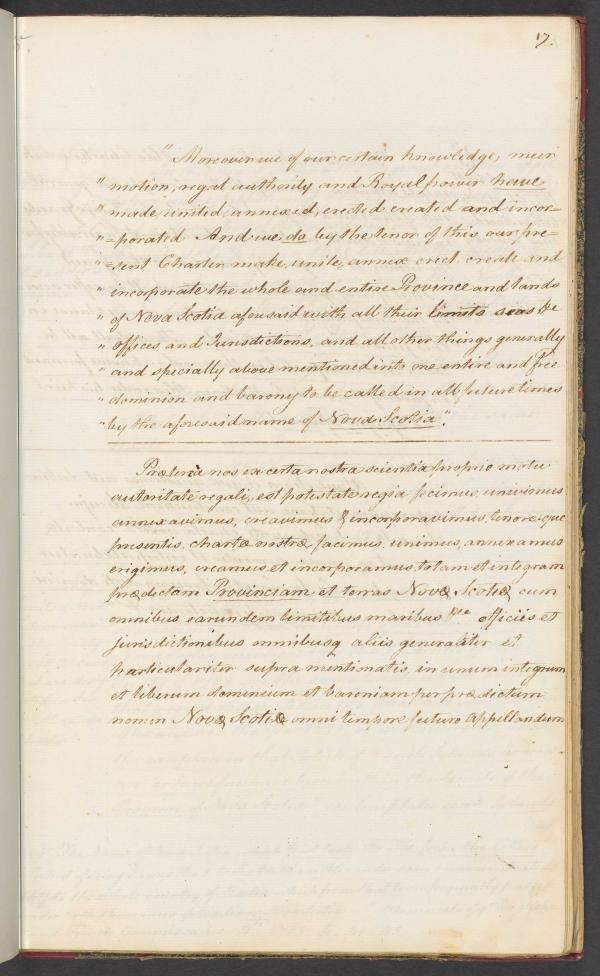 17.
" Moreover we of our certain knowledge, meer
" motion, regal authority and Royal power have
" made, united, annexed, erected created and incor=
" =porated And we do by the tenor of this our pre=
" =sent Charter make, unite, annex erect create and
" incorporate the whole and entire Province and lands
" of Nova Scotia aforesaid with all their limits seas &c
" offices and Jurisdictions, and all other things generally
" and specially above mentioned into one entire and free
" dominion and barony to be called in all future times
" by the aforesaid name of Nova Scotia".
Præterèa nos ex certa nostra scientia proprio motu
autoritate regali, est potestate regia fecimus, univimus
annexavimus, creavimus & incorporavimus, tenoreque
presentis, chartæ nostræ facimus, unimus, annexamus
erigimus, creamus et incorporamus, totam et integram
prædictam Provinciam et terras Novæ Scotiæ cum
omnibus earundem limitibus maribus &ca officiis et
jurisdictionibus omnibusq aliis generaliter et
particulariter supra mentionatis, in unum integrum
et liberum dominium et baroniam per prædictum
nomen Novæ Scotiæ omni tempore futuro appellandum